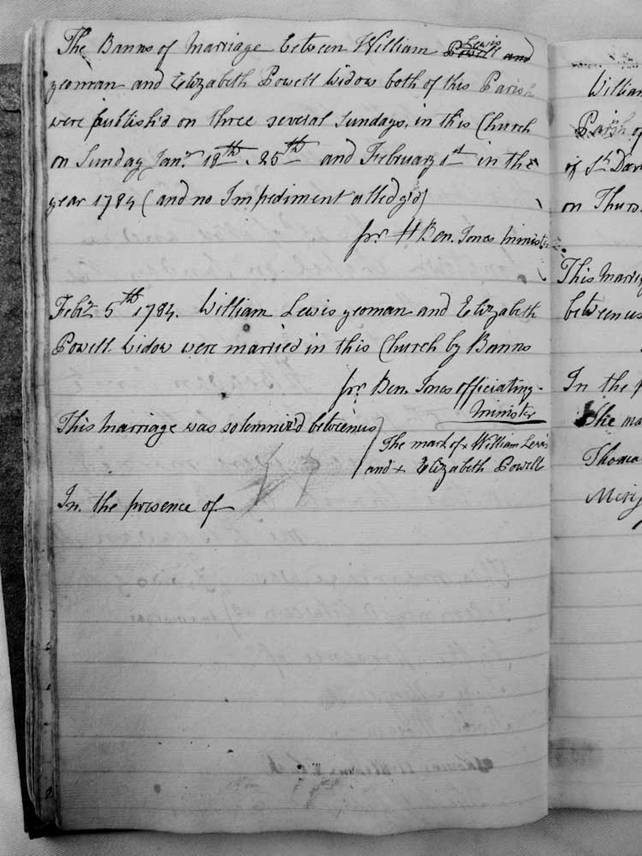 The Banns of Marriage between William Powell Lewis and
yeoman and Elizabeth Powell Widow both of this Parish
were publish'd on three several Sundays, in this Church
on Sunday Janry 18th. 25th and February 1st in the
year 1784 (and no Impediment alledg'd)
pr. H Ben. Jones Minister
Febry 5th 1784. William Lewis yeoman and Elizabeth
Powell Widow were married in this Church by Banns
pr. Ben. Jones officiating
Minister
This marriage was solemniz'd between us
The mark of x William Lewis
and x Elizabeth Powell
In the presence of
William
Parish of
of St. Dav
on Thurs
This marri
between us
In the p
The ma
Thomas